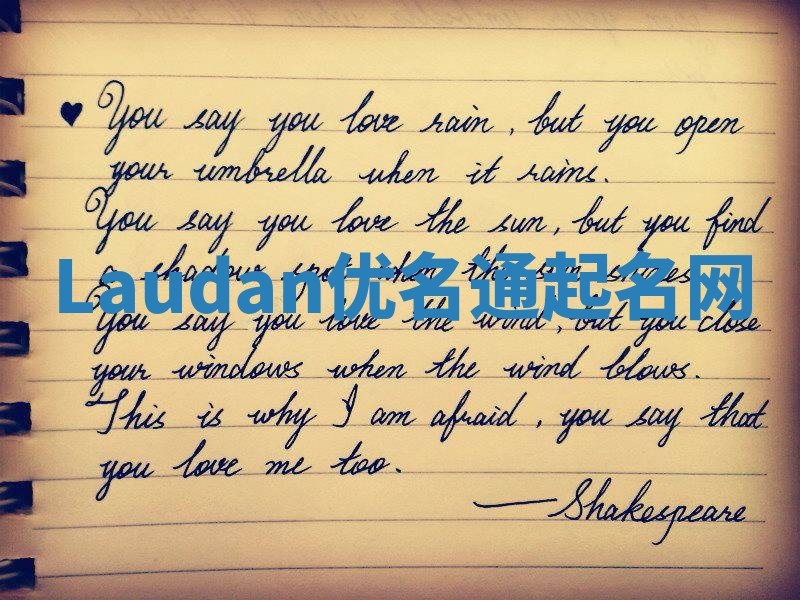 ♥ You say you love rain, but you open
your umbrella when it rains.
You say you love the sun, but you find
a shadow spot when the sun shines
Laudan优名通起名网
You say you love the wind, but you close
your windows when the wind blows.
This is why I am afraid, you say that
you love me too.
—Shakespeare